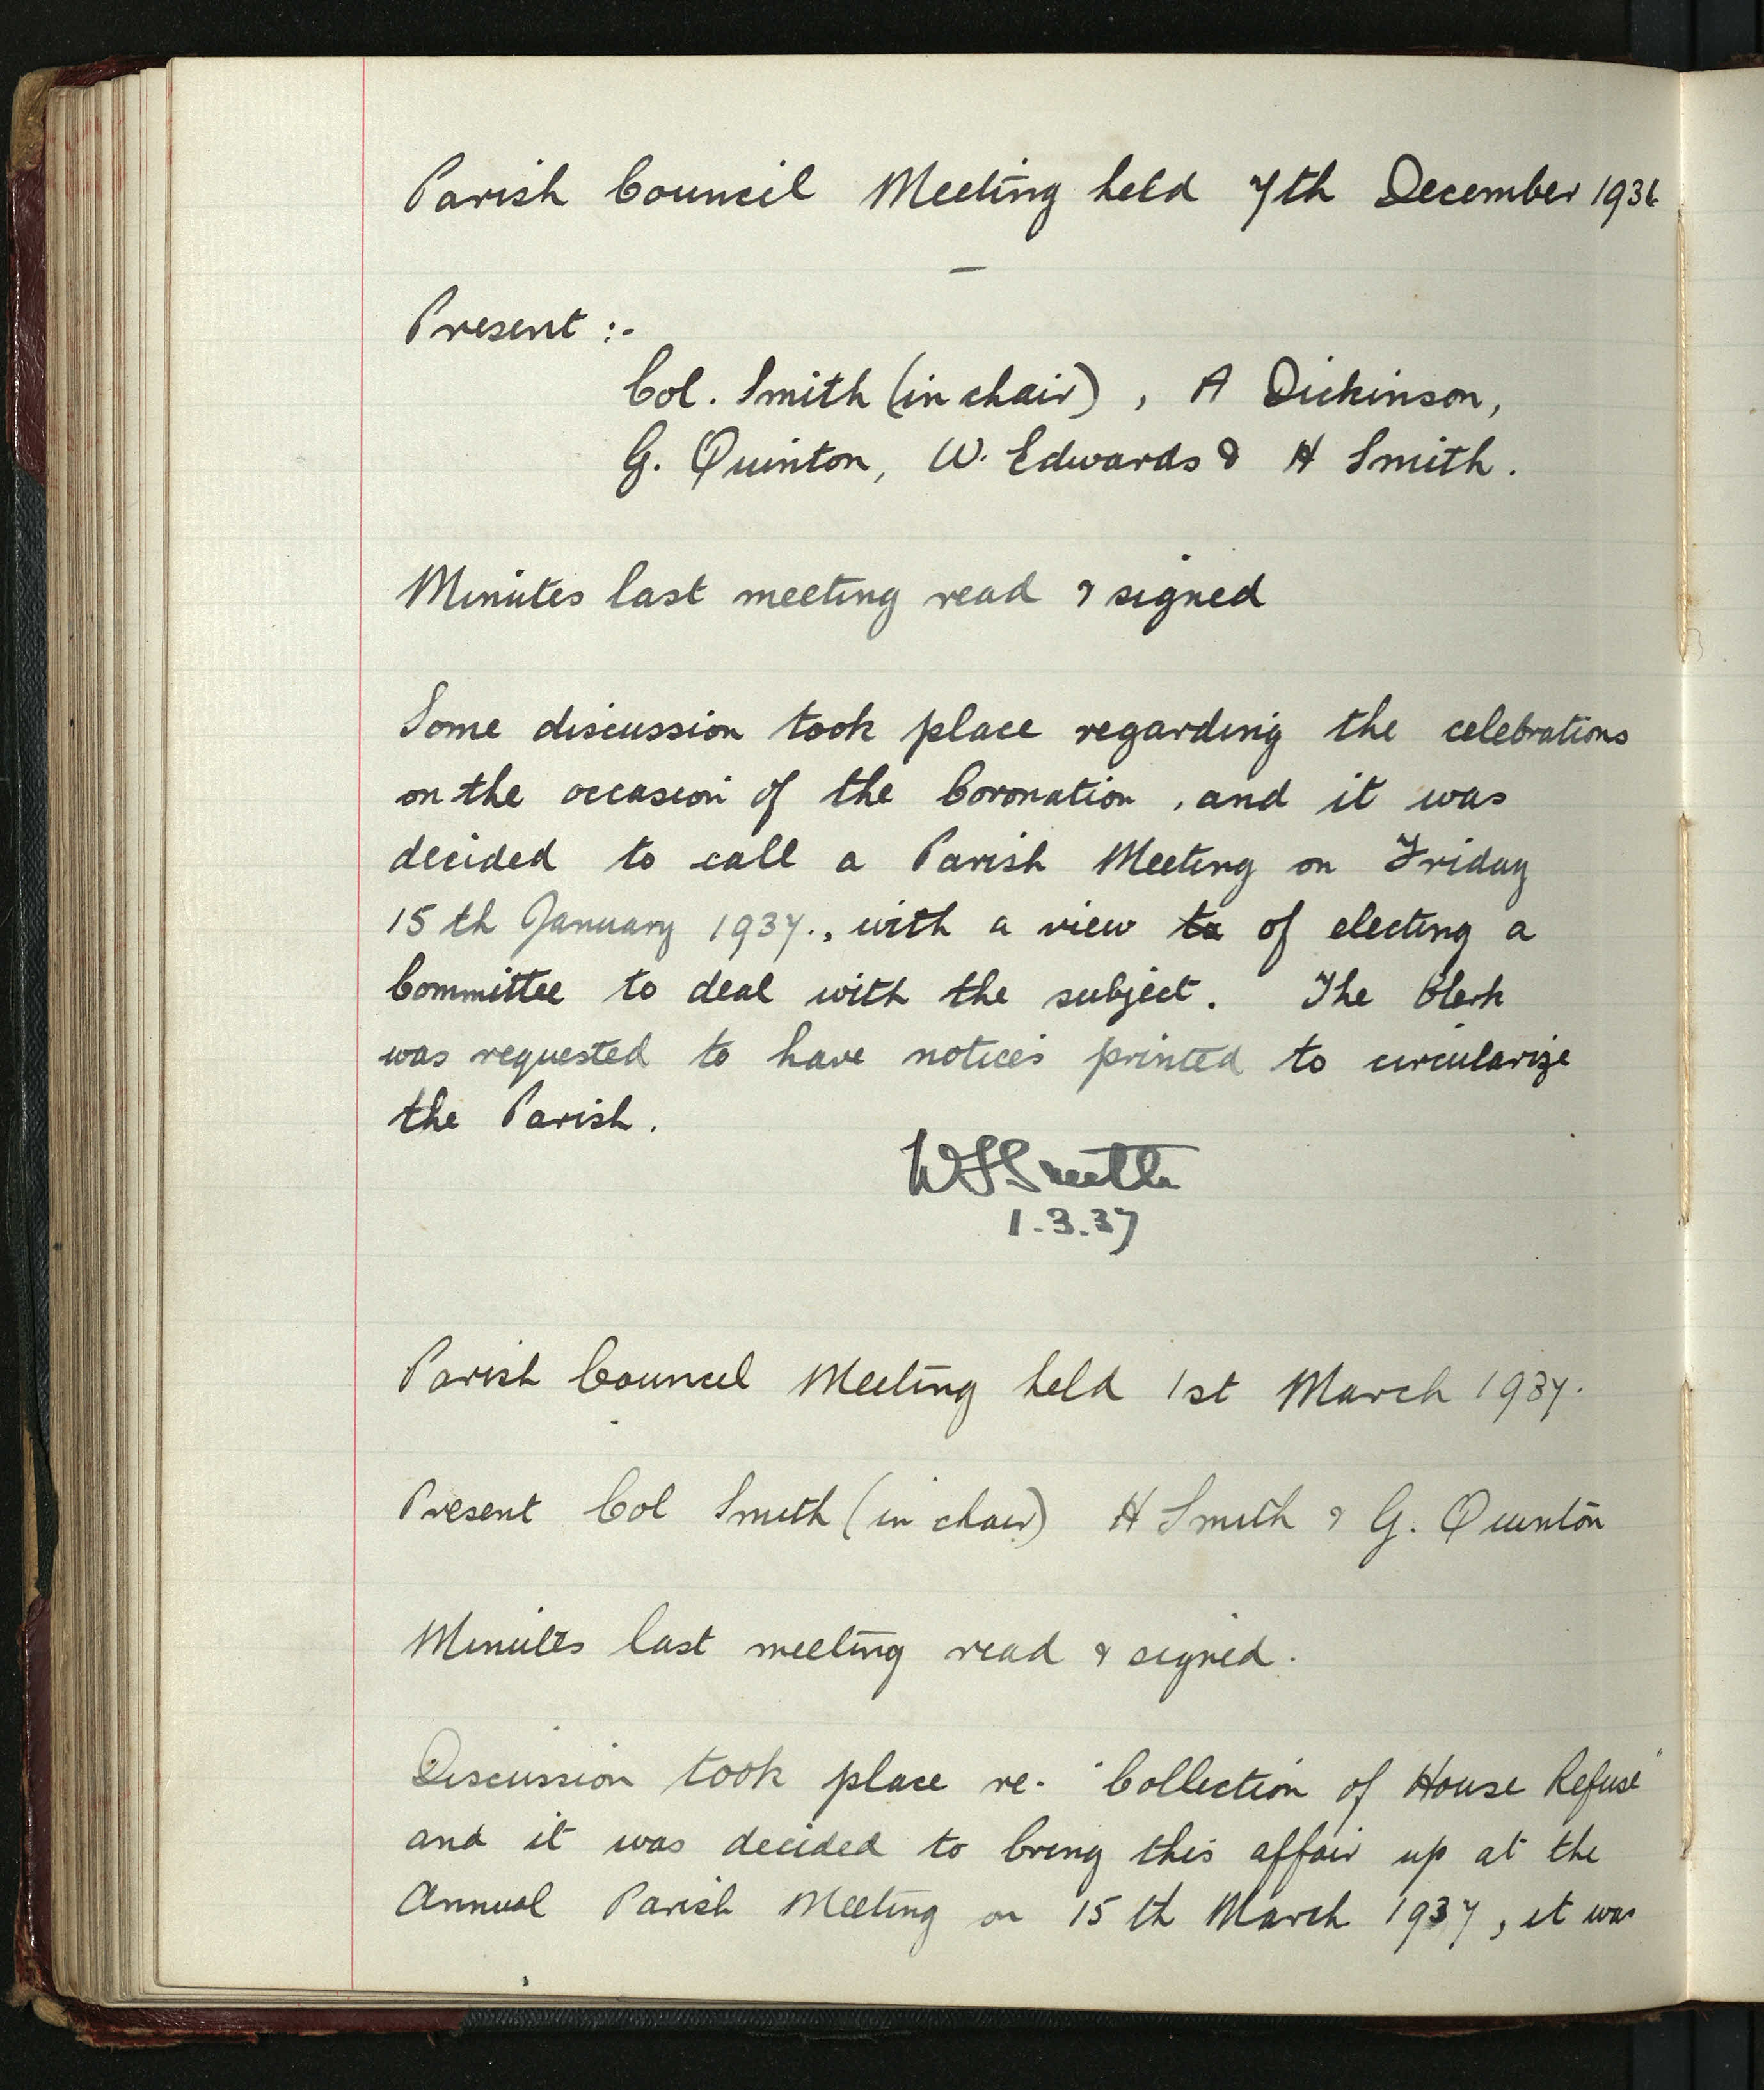 Parish Council Meeting held 7th December 1936
Present :-
Col. Smith (in chair) , A Dickinson,
G. Quinton, W. Edwards & H Smith.
Minutes last meeting read & signed
Some discussion took place regarding the celebrations
on the occasion of the Coronation , and it was
decided to call a Parish Meeting on Friday
15th January 1937., with a view to of electing a
Committee to deal with the subject. The Clerk
was requested to have notices printed to circularize
the Parish.
WSSmith
1.3.37
Parish Council Meeting held 1st March 1937.
Present Col Smith (in chair) H Smith & G. Quinton
Minutes last meeting read & signed.
Discussion took place re. "Collection of House Refuse"
and it was decided to bring this affair up at the
Annual Parish Meeting on 15th March 1937, it was